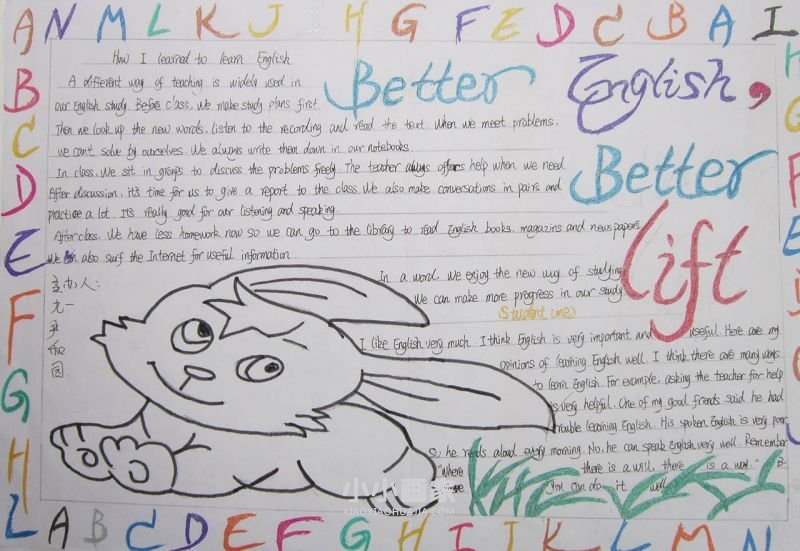 A N M L K J H G F E D C B A I
B
C
D
E
F
G
H
L
H
G
F
E
How I learned to learn English
Better English,
Better lift
A different way of teaching is widely used in
our English study. Before class, We make study plans first.
Then we look up the new words, listen to the recording and read the text. When we meet problems,
we can't solve by ourselves. We always write them down in our notebooks.
In class, We sit in groups to discuss the problems freely. The teacher always offers help when we need
After discussion, it's time for us to give a report to the class. We also make conversations in pairs and
practice a lot. It's really good for our listening and speaking.
After class, We have less homework now so we can go to the library to read English books, magazins and newspapers
We can also surf the Internet for useful information.
In a word, we enjoy the new way of studying
We can make more progress in our study
Student (me)
I like English very much. I think English is very important and useful. Here are my
opinions of learning English well. I think there are many ways
to learn English. For example, asking the teacher for help
is very helpful. One of my good friends said he had
trouble learning English. His spoken English is very poor
So he reads aloud every morning. No, he can speak English very well. Remember
"Where there is a will, there is a way." B-
You can do it well
小小画家
XIAOXIAOHUAJIA.COM
A B C D E F G H I J K L M N